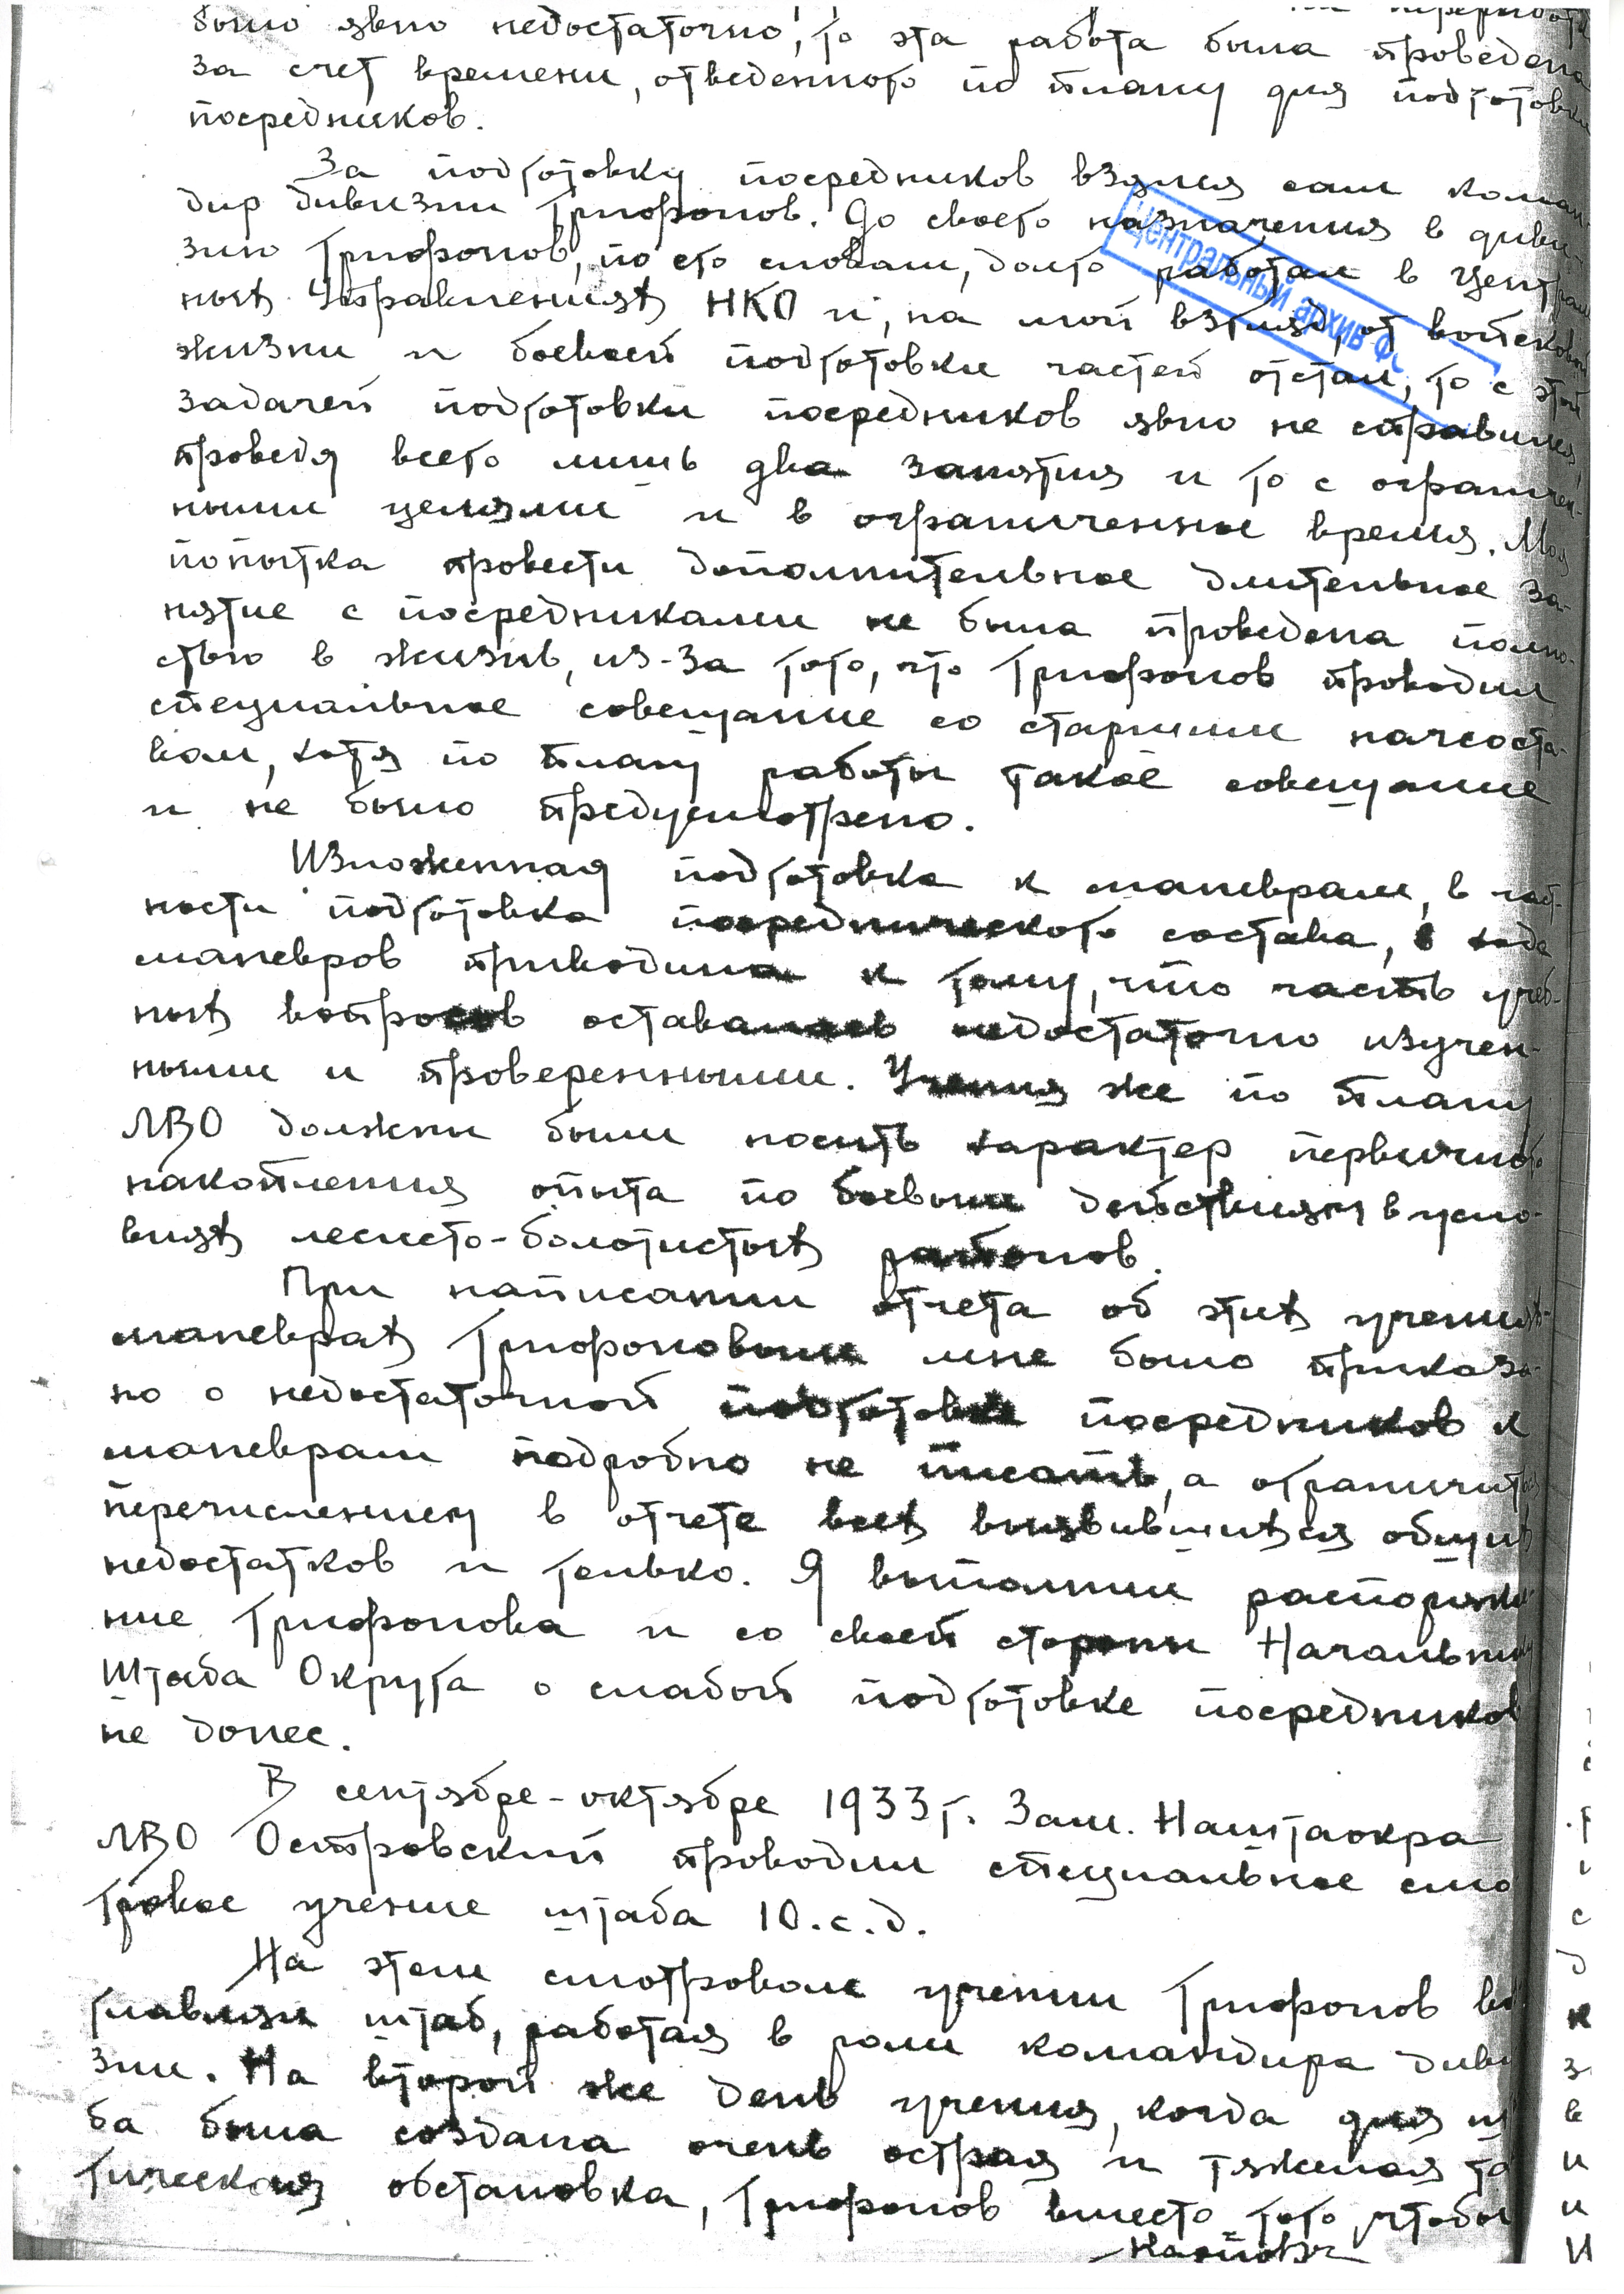 было явно недостаточно, то эта работа была проведена
за счет времени, отведенного по плану для подготовки
посредников.
За подготовку посредников взялся сам коман-
дир дивизии Трифонов. До своего назначения в диви-
зию Трифонов, по его словам, долго работал в Централь
ных Управлениях НКО и, на мой взгляд, от войсковой
жизни и боевой подготовки частей отстал, то с этой
задачей подготовки посредников явно не справился,
проведя всего лишь два занятия и то с ограничен-
ными целями и в ограниченное время. Моя
попытка провести дополнительное длительное за-
нятие с посредниками не была проведена полно-
стью в жизнь, из-за того, что Трифонов проводил
специальное совещание со старшим начсоста-
вом, хотя по плану работы такое совещание
и не было предусмотрено.
Изложенная подготовка к маневрам, в част-
ности подготовка посреднического состава, в ходе
маневров приводила к тому, что часть учеб-
ных вопросов оставалась недостаточно изучен-
ными и проверенными. Учения же по плану
ЛВО должны были носить характер первичного
накопления опыта по боевым действиям в усло-
виях лесисто-болотистых районов.
При написании отчета об этих учениях-
маневрах Трифоновым мне было приказа-
но о недостаточной подготовке посредников к
маневрам подробно не писать, а ограничиться
перечислением в отчете всех выявившихся общих
недостатков и только. Я выполнил распоряже
ние Трифонова и со своей стороны Начальнику
Штаба Округа о слабой подготовке посредников
не донес.
В сентябре-октябре 1933 г. Зам. Наштаокра
ЛВО Островский проводил специальное смо
тровое учение штаба 10.с.д.
На этом смотровом учении Трифонов воз
главлял штаб, работая в роли командира диви
зии. На второй же день учения, когда для шта
ба была создана очень острая и тяжелая так
тическая обстановка, Трифонов вместо того, чтобы
Центральный архив Ф